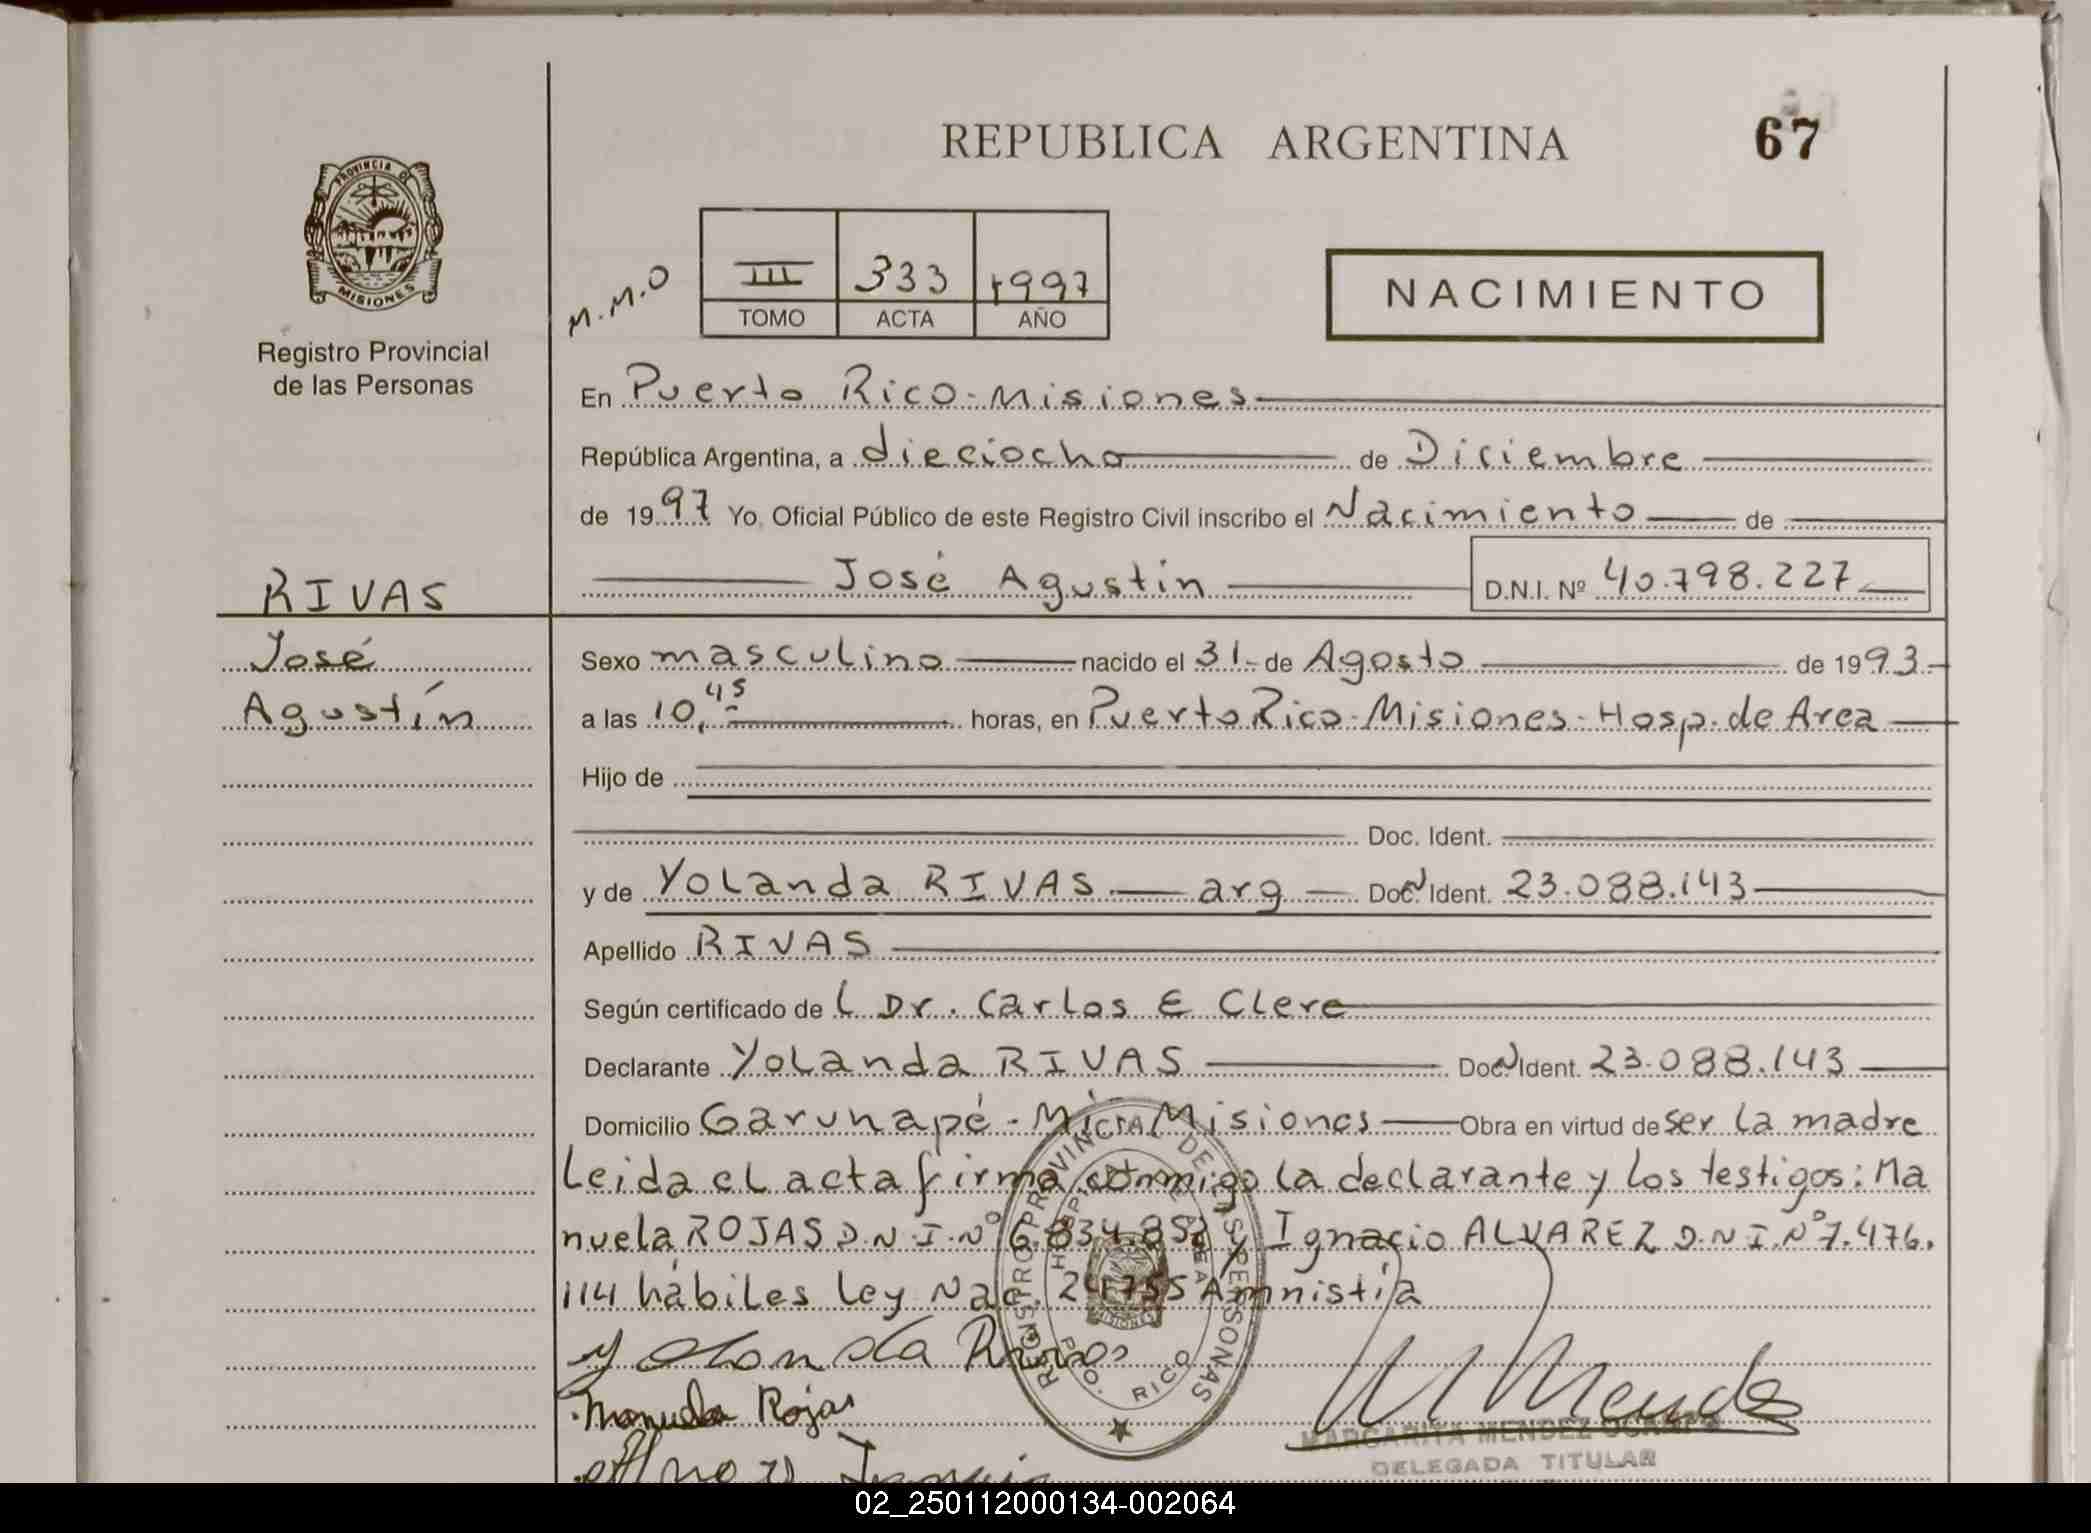 REPUBLICA ARGENTINA
67
PROVINCIA DE
MISIONES
Registro Provincial
de las Personas
M.M.O
III 333 1997
TOMO ACTA AÑO
NACIMIENTO
En Puerto Rico-Misiones
República Argentina, a dieciocho de Diciembre
de 1997 Yo, Oficial Público de este Registro Civil inscribo el Nacimiento de
José Agustín D.N.I. Nº 40.798.227
RIVAS
José
Agustín
Sexo masculino nacido el 31 de Agosto de 1993
a las 10,45 horas, en Puerto Rico-Misiones-Hosp. de Area
Hijo de
Doc. Ident.
y de Yolanda RIVAS arg Doc. Ident. 23.088.143
Apellido RIVAS
Según certificado de L Dr. Carlos E Clere
Declarante Yolanda RIVAS Doc. Ident. 23.088.143
Domicilio Garuhapé - Mis Misiones Obra en virtud de ser la madre
Leida el acta firma conmigo la declarante y los testigos: Ma
nuela ROJAS D.N.I.Nº 6.834.852 y Ignacio ALVAREZ D.N.I.Nº 7.476.
114 hábiles Ley Nac. 24755 Amnistía
Yolanda Rivas
Manuela Rojas
REGISTRO PROVINCIAL DE LAS PERSONAS
HOSPITAL DE AREA
PTO. RICO
MISIONES
M Mendez
MARGARITA MENDEZ OCAMPO
DELEGADA TITULAR
02_250112000134-002064